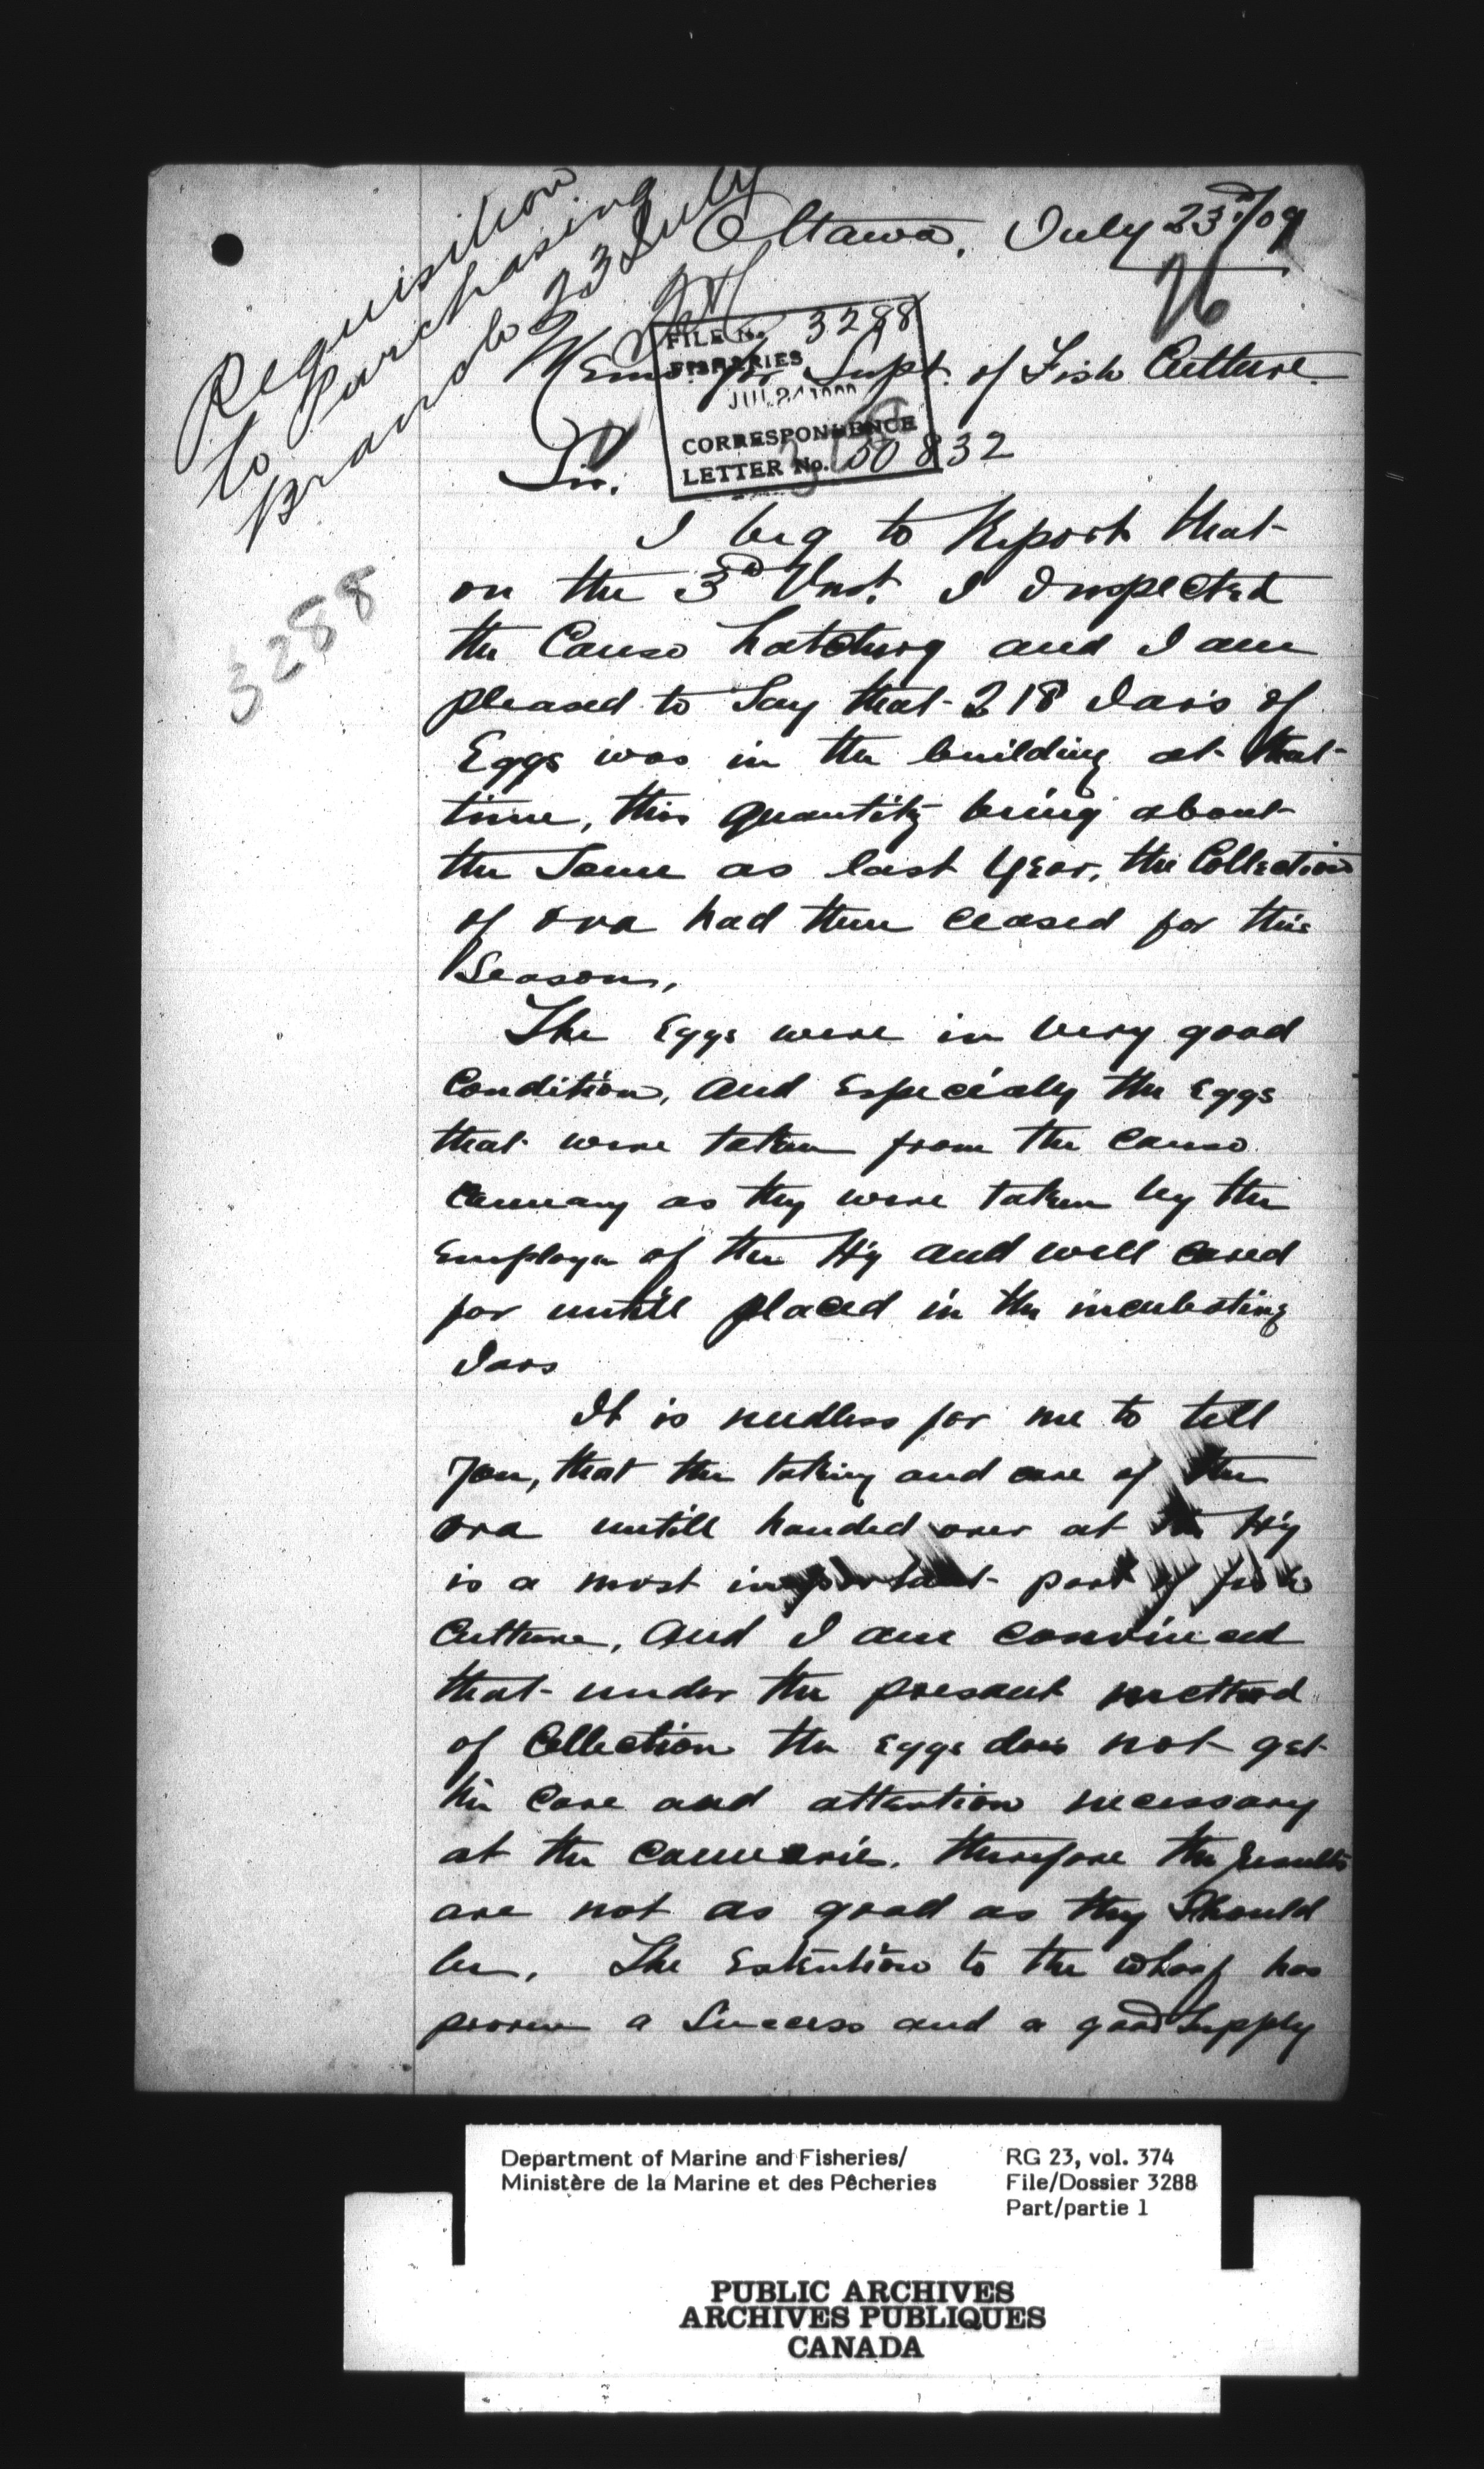 Requisition
to Purchasing
Branch 23 July
Ottawa, July 23rd/09
76
Memo for Supt. of Fish Culture
FILE No. 3288
FISHERIES
JUL 24 1909
CORRESPONDENCE
LETTER No. 50832
Sir.
3288
I beg to Report that
on the 3rd Inst. I Inspected
the Canso hatchery and I am
pleased to Say that 218 Jars of
Eggs was in the building at that
time, this quantity being about
the Same as last Year, the Collection
of ova had then ceased for this
Season,
The Eggs were in very good
Condition, and Especialy the Eggs
that were taken from the Canso
Cannary as they were taken by the
Employe of the H'y and well cared
for untill placed in the incubating
Jars
It is needless for me to tell
You, that the taking and care of the
ova untill handed over at the H'y
is a most important part of fish
Culture, and I am convinced
that under the presant method
of Collection the Eggs does not get
the Care and attantion necessary
at the Canneries. therefore the results
are not as good as they Should
be. The Extention to the wharf has
proven a Success and a good Supply
Department of Marine and Fisheries/
Ministère de la Marine et des Pêcheries
RG 23, vol. 374
File/Dossier 3288
Part/partie 1
PUBLIC ARCHIVES
ARCHIVES PUBLIQUES
CANADA